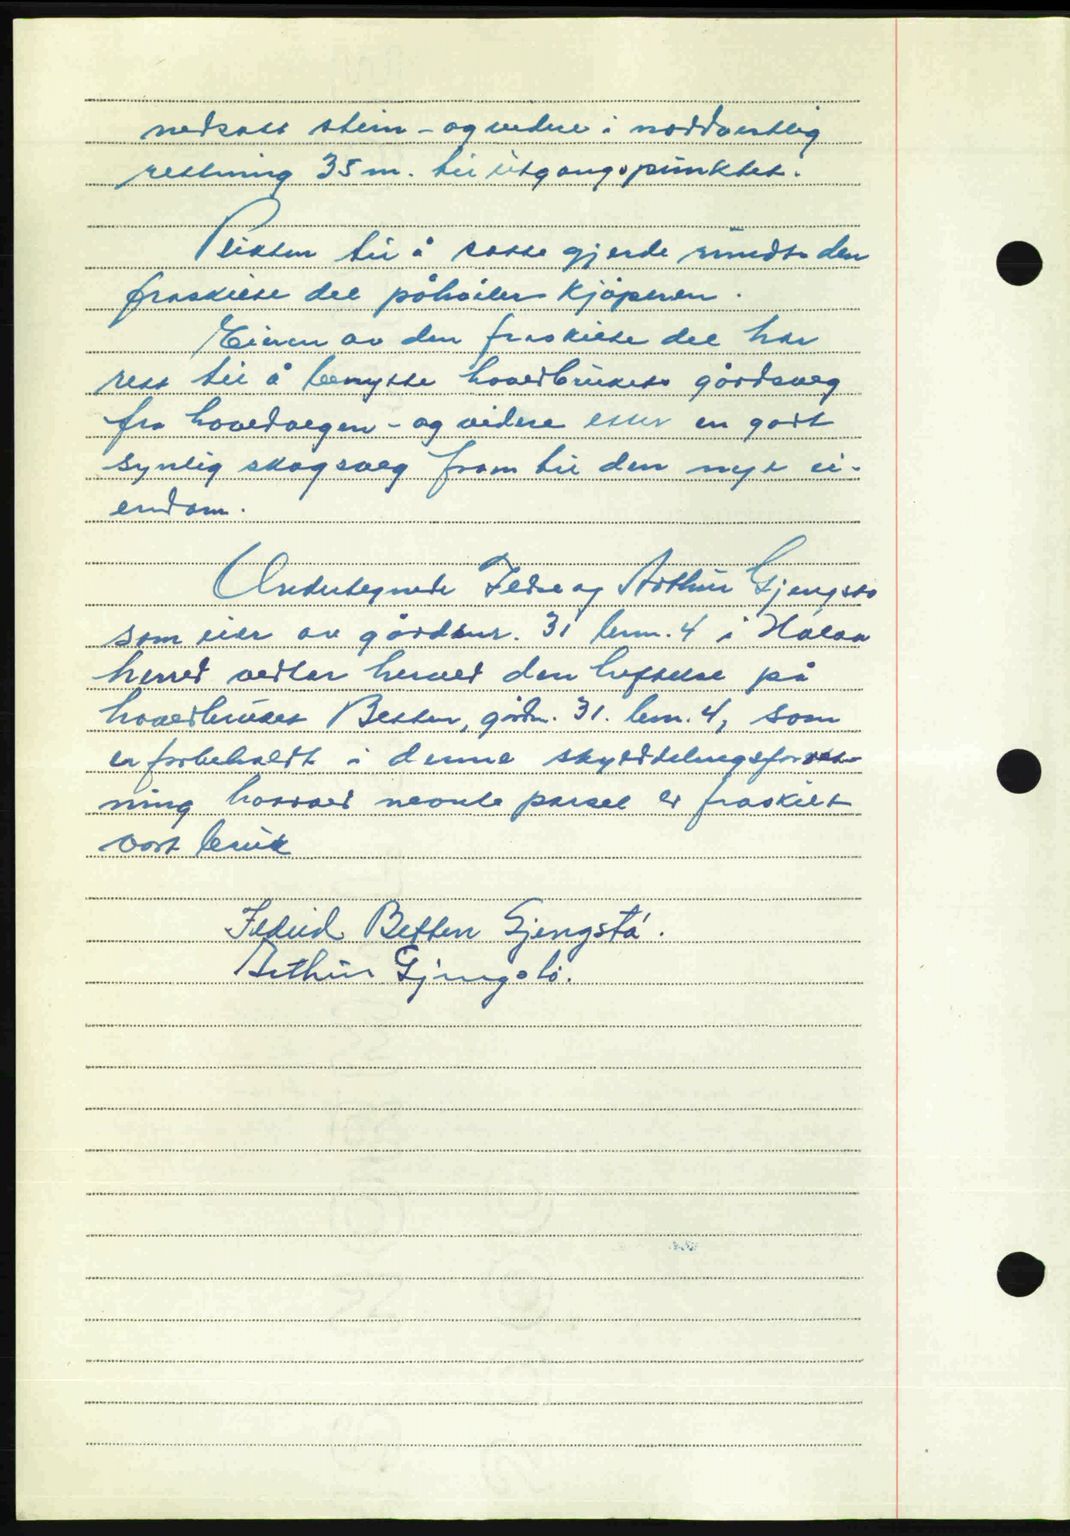 nedsatt stein - og videre i nordvestlig
rettning 35 m. til utgangspunktet.
Plikten til å sette gjerde rundt den
fraskilte del påhviler kjøperen.
Eieren av den fraskilte del har
rett til å benytte hovedbrukets gårdsveg
fra hovedvegen - og videre etter en godt
synlig skogsveg fram til den nye ei-
endom.
Undertegnede og Arthur Gjengstø
som eier av gårdsnr. 31 brnr. 4 i
herred vedtar herved den heftelse på
hovedbruket Betten, gårdsnr. 31. brnr. 4, som
er forbeholdt i denne skylddelingsforret-
ning hvorved nevnte parsel er fraskilt
vort bruk
Betten Gjengstø.
Arthur Gjengstø.